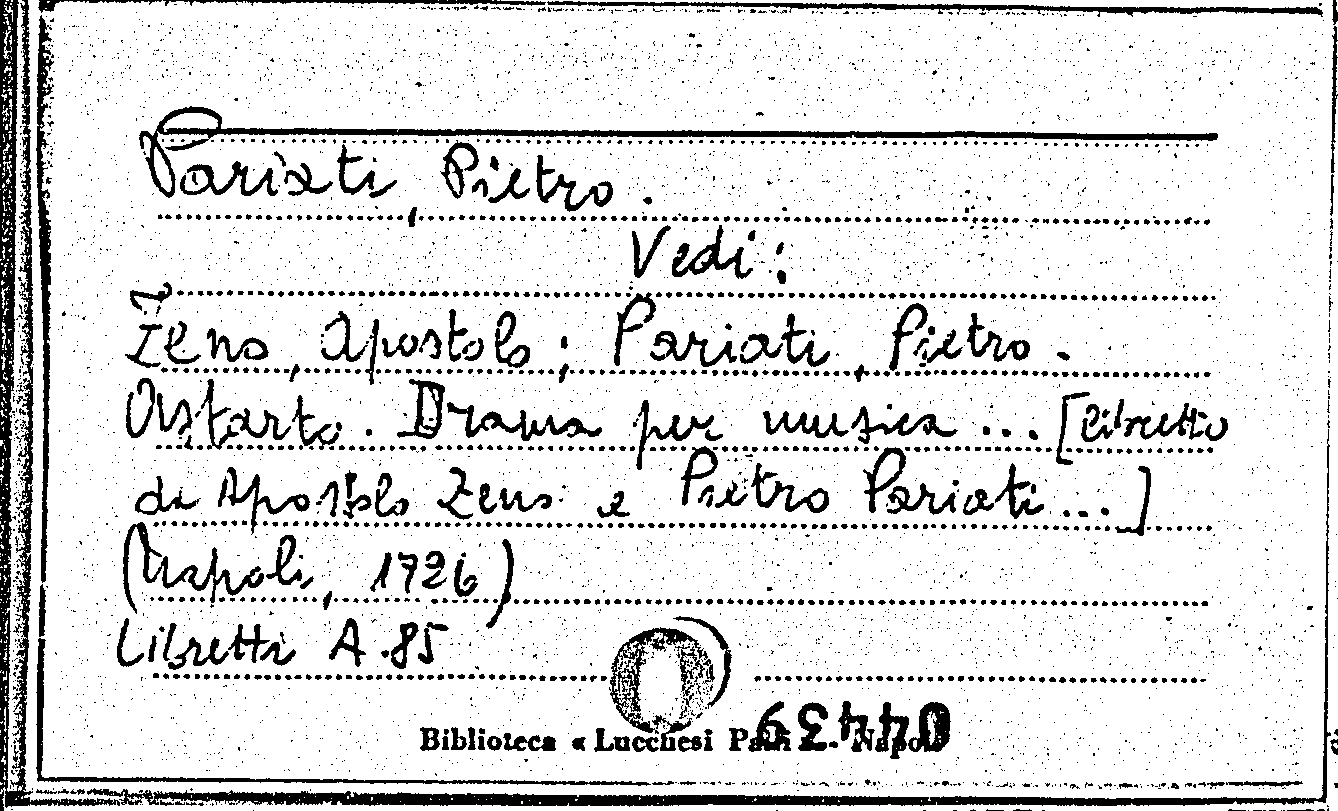 Pariati, Pietro.
Vedi:
Zeno, Apostolo; Pariati, Pietro.
Astarto. Drama per musica ... [libretto
di Apostolo Zeno e Pietro Pariati ...]
(Napoli, 1726)
Libretti A.85
Biblioteca « Lucchesi Palli » - Napoli
04439